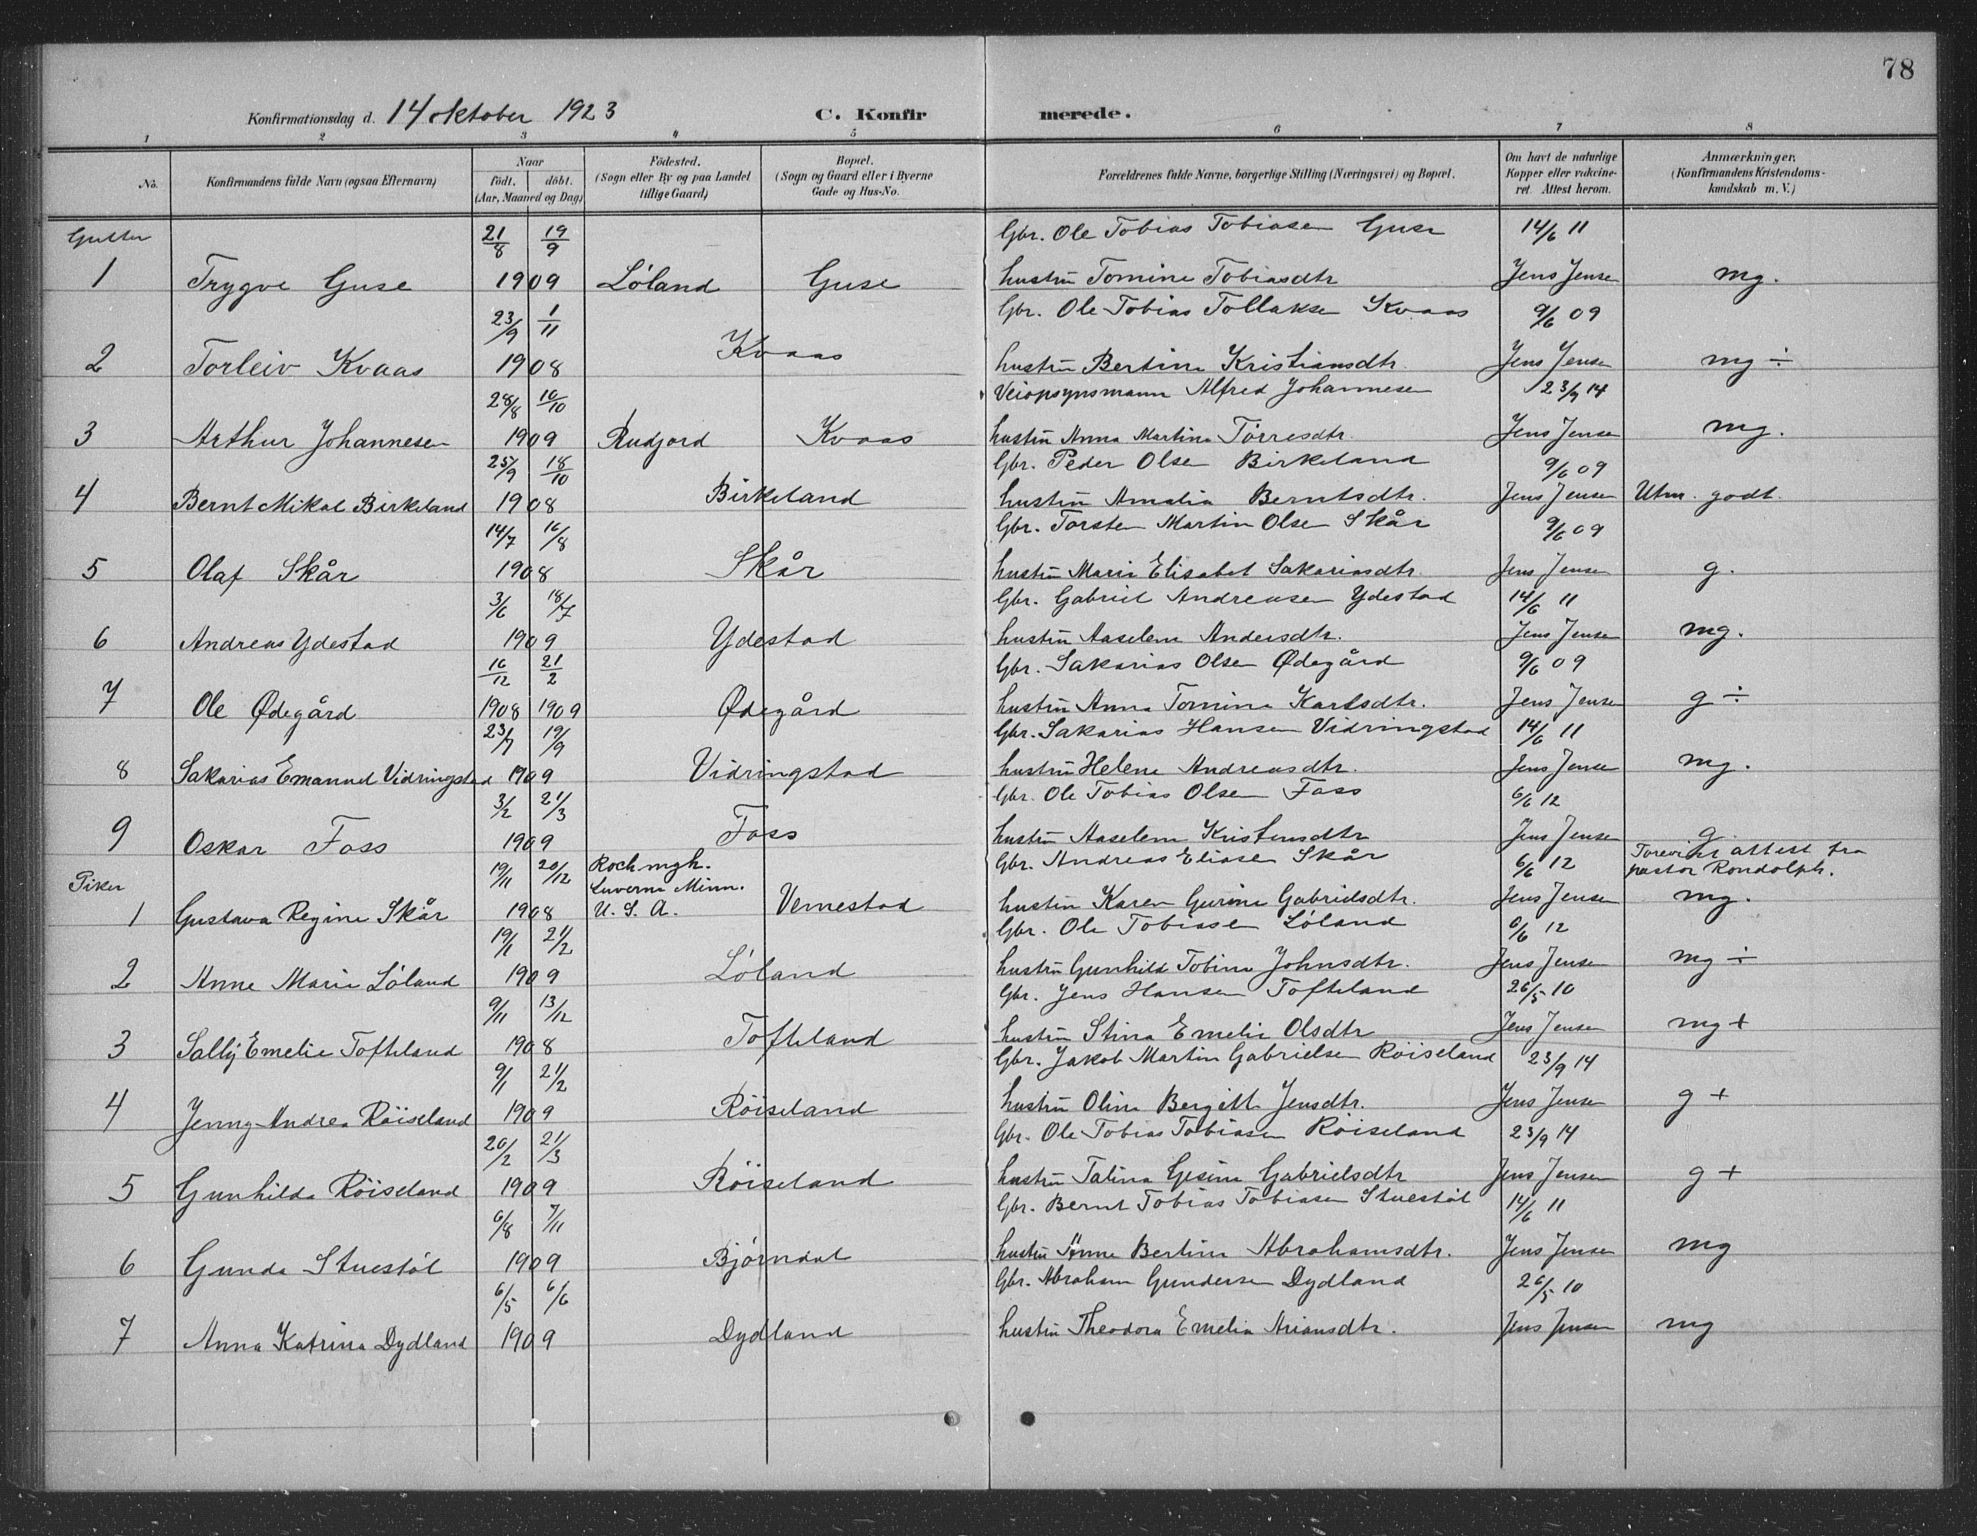 78
Konfirmationsdag d. 14 oktober 1923 C. Konfirmerede.
1 2 3 4 5 6 7 8
No. Konfirmandens fulde Navn (ogsaa Efternavn) Naar födt. döbt. (Aar, Maaned og Dag) Födested. (Sogn eller By og paa Landet tillige Gaard) Bopæl. (Sogn og Gaard eller i Byerne Gade og Hus-No. Forældrenes fulde Navne, borgerlige Stilling (Næringsvei) og Bopæl. Om havt de naturlige Kopper eller vakcineret. Attest herom. Anmærkninger. (Konfirmandens Kristendomskundskab m. V.)
Gutter 21/8 19/9 Gbr. Ole Tobias Tobiasen Guse 14/6 11
1 Trygve Guse 1909 Löland Guse hustru Tomine Tobiasdtr Jens Jensen mg.
23/9 1/11 Gbr. Ole Tobias Tollaksen Kvaas 9/6 09
2 Torleiv Kvaas 1908 Kvaas hustru Bertine Kristiansdtr. Jens Jensen mg ÷
28/8 16/10 Veiopsynsmann Alfred Johannesen 23/9 14
3 Arthur Johannesen 1909 Rudjord Kvaas hustru Anna Martina Törresdtr. Jens Jensen mg.
25/9 18/10 Gbr. Peder Olsen Birkeland 9/6 09
4 Bernt Mikal Birkeland 1908 Birkeland hustru Amalia Berntsdtr. Jens Jensen Utm. godt.
14/7 16/8 Gbr. Torsten Martin Olsen Skår 9/6 09
5 Olaf Skår 1908 Skår hustru Marie Elisabet Sakariasdtr. Jens Jensen g.
3/6 18/7 Gbr. Gabriel Andreasen Ydestad 14/6 11
6 Andreas Ydestad 1909 Ydestad hustru Aaselene Andersdtr. Jens Jensen mg.
16/12 21/2 Gbr. Sakarias Olsen Ødegård 9/6 09
7 Ole Ødegård 1908 1909 Ødegård hustru Anna Tomine Karlsdtr. Jens Jensen g ÷
23/7 19/9 Gbr. Sakarias Hansen Vidringstad 14/6 11
8 Sakarias Emanuel Vidringstad 1909 Vidringstad hustru Helene Andreasdtr. Jens Jensen mg.
3/2 21/3 Gbr. Ole Tobias Olsen Foss 6/6 12
9 Oskar Foss 1909 Foss hustru Aaselene Kristensdtr Jens Jensen g.
19/11 20/12 Rock mgh. Gbr. Andreas Eliasen Skår 6/6 12 attest fra
Piker Luverne Minn. pastor Rondolph.
1 Gustava Regine Skår 1908 U. S. A. Vemestad hustru Karen Gurine Gabrielsdtr. Jens Jensen mg.
19/1 21/2 Gbr. Ole Tobiasen Löland 6/6 12
2 Anne Marie Löland 1909 Löland hustru Gunhild Tobine Johnsdtr. Jens Jensen mg ÷
9/11 13/12 Gbr. Jens Hansen Tofteland 26/5 10
3 Sally Emelie Tofteland 1908 Tofteland hustru Stina Emelie Olsdtr Jens Jensen mg +
9/1 21/2 Gbr. Jakob Martin Gabrielsen Röiseland 23/9 14
4 Jenny Andrea Röiseland 1909 Röiseland hustru Oline Bergitte Jensdtr. Jens Jensen g +
20/2 21/3 Gbr. Ole Tobias Tobiasen Röiseland 23/9 14
5 Gunhilda Röiseland 1909 Röiseland hustru Talina Gesine Gabrielsdtr Jens Jensen g +
6/8 7/11 Gbr. Bernt Tobias Tobiasen Stuestöl 14/6 11
6 Gunda Stuestöl 1909 Bjørndal hustru Tönne Bertine Abrahamsdtr. Jens Jensen mg
6/5 6/6 Gbr. Abraham Gundersen Dydland 26/5 10
7 Anna Katrina Dydland 1909 Dydland hustru Theodora Emelia Ariansdtr. Jens Jensen mg